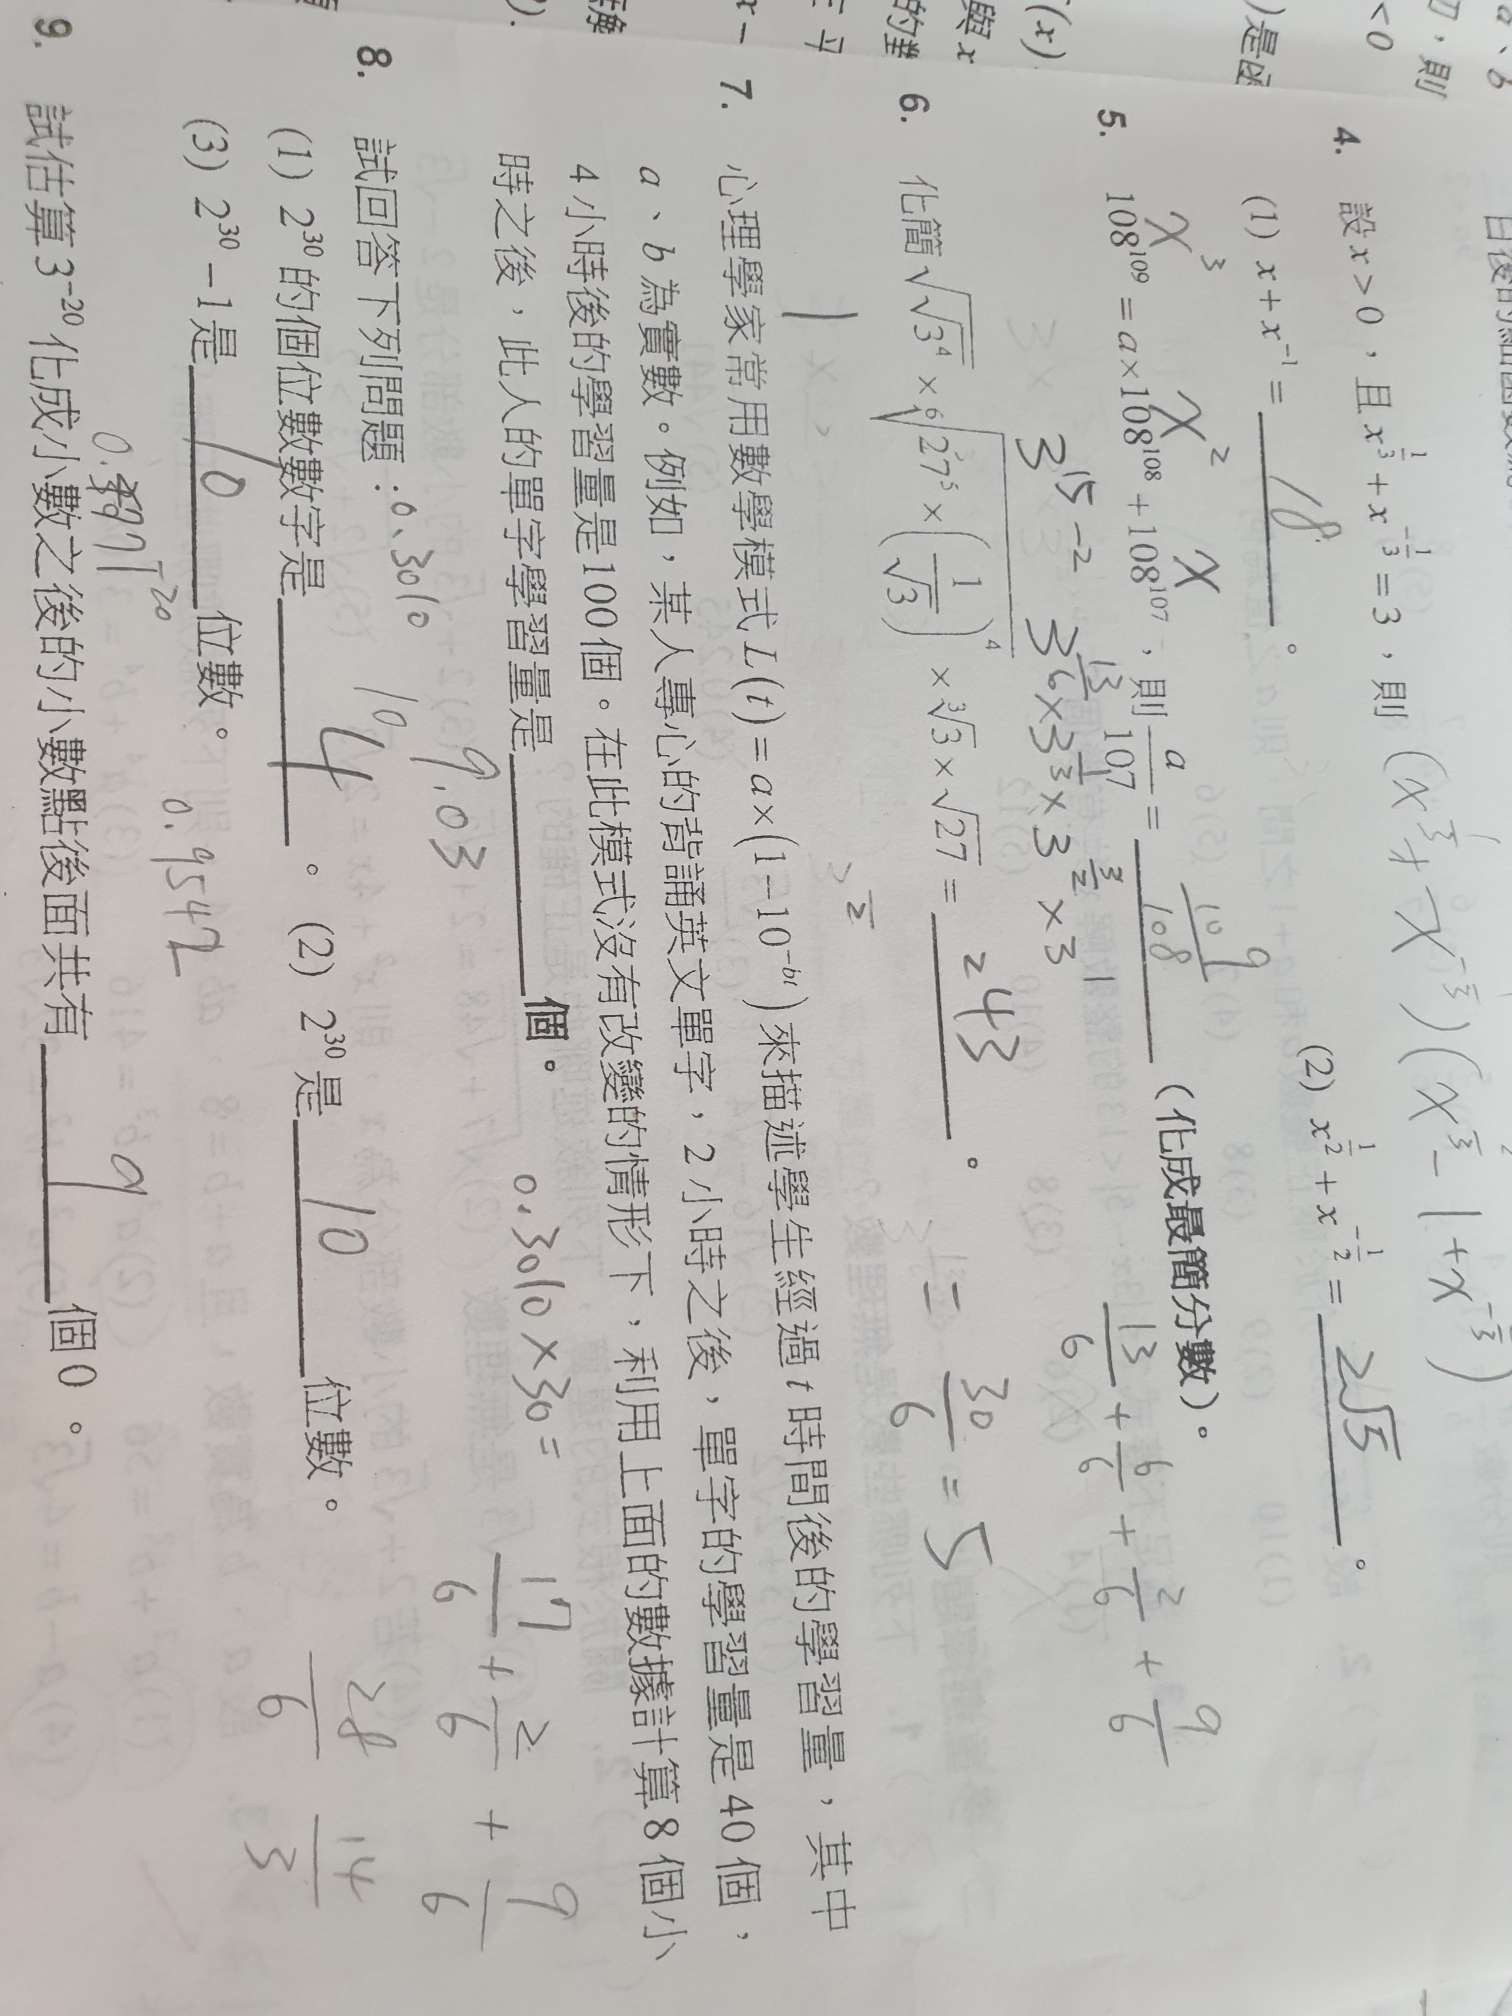 a、b
，則
< 0
)是函
(x)
與 x
的對
x −
4. 設 x > 0，且 x^{1/3} + x^{-1/3} = 3，則 (x^{1/3} + x^{-1/3})(x^{2/3} - 1 + x^{-2/3})
(1) x + x^{-1} = 18。 (2) x^{1/2} + x^{-1/2} = 2√5。
x^3 x^2 x
5. 108^{109} = a × 108^{108} + 108^{107}，則 a/107 = 109/108（化成最簡分數）。
3^{15-2} 3^{13/6} × 3^{1/3} × 3^{3/2} × 3^1
13/6 + 6/6 + 2/6 + 9/6
6. 化簡 √√3^4 × ⁶√(27^5 × (1/√3)^4) × ³√3 × √27 = 243。
= 30/6 = 5
7. 心理學家常用數學模式 L(t) = a × (1 − 10^{-bt}) 來描述學生經過 t 時間後的學習量，其中
a、b 為實數。例如，某人專心的背誦英文單字，2 小時之後，單字的學習量是 40 個，
4 小時後的學習量是 100 個。在此模式沒有改變的情形下，利用上面的數據計算 8 個小
時之後，此人的單字學習量是 個。
0.3010 × 30 =
9.03
17/6 + 2/6 + 9/6
8. 試回答下列問題：0.3010
10
28/6 14/3
(1) 2^{30} 的個位數數字是 4。 (2) 2^{30} 是 10 位數。
(3) 2^{30} − 1 是 10 位數。
0.9542
9. 試估算 3^{-20} 化成小數之後的小數點後面共有 9 個 0。